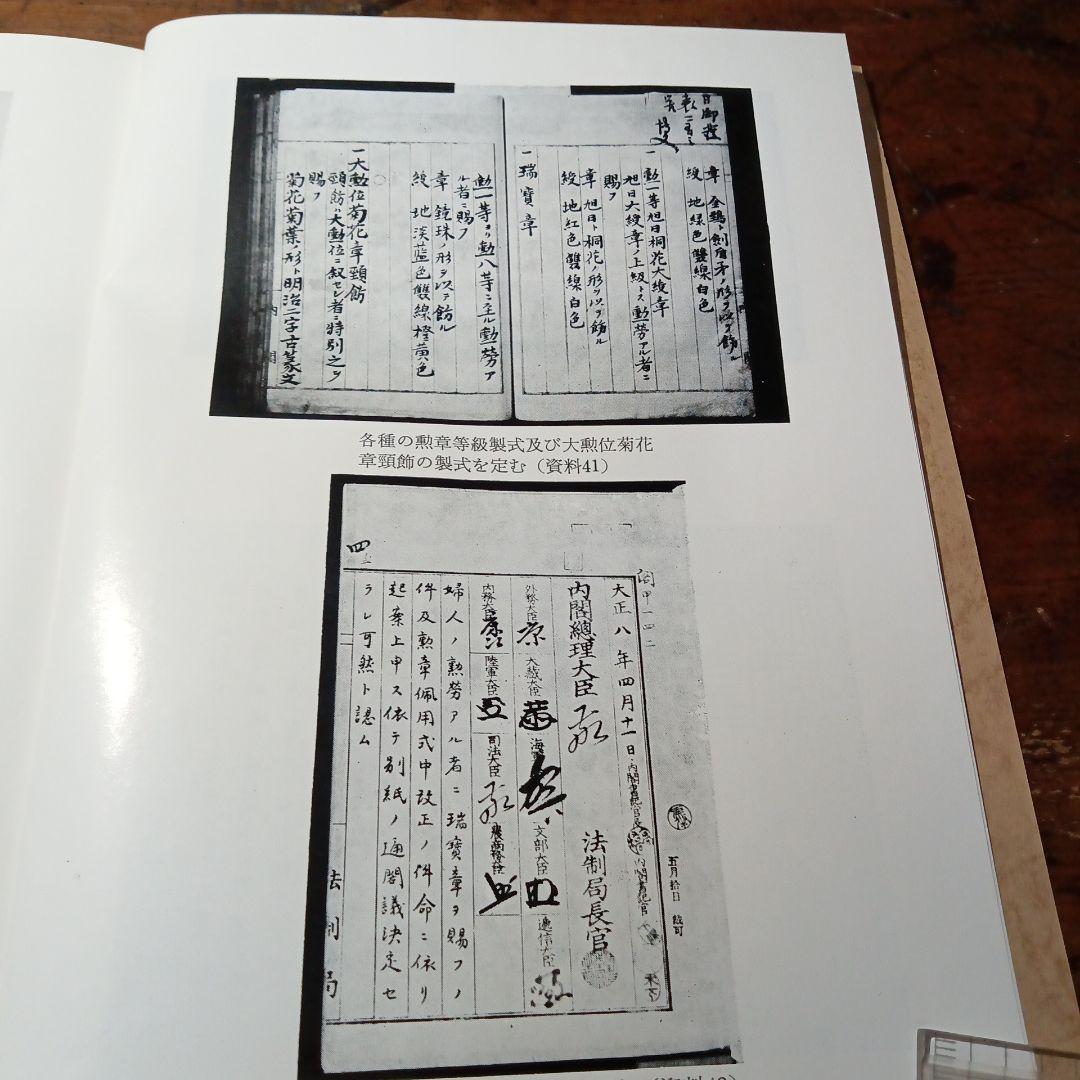 章 金鵄ト劍盾矛ノ形ヲ以テ飾ル
綬 地緑色雙線白色
一 勲一等旭日桐花大綬章
旭日大綬章ノ上級トス勲勞アル者ニ
賜フ
章 旭日ト桐花ノ形ヲ以テ飾ル
綬 地紅色雙線白色
一 瑞寶章
勲一等ヨリ勲八等ニ至ル勲勞ア
ル者ニ賜フ
章 鏡珠ノ形ヲ以テ飾ル
綬 地淡藍色雙線橙黄色
一大勲位菊花章頸飾
頸飾ハ大勲位ニ叙セシ者ニ特別之ヲ
賜フ
菊花菊葉ノ形ト明治二字古篆文
内
閣
各種の勲章等級製式及び大勲位菊花
章頸飾の製式を定む（資料41）
閣甲一四二
大正八年四月十一日
内閣書記官長
内閣書記官
五月拾日 裁可
内閣總理大臣
法制局長官
外務大臣
大藏大臣
海
文部大臣
遞信大臣
内務大臣
陸軍大臣
司法大臣
農商務大臣
婦人ノ勲勞アル者ニ瑞寶章ヲ賜フノ
件及勲章佩用式中改正ノ件命ニ依リ
起案上申ス依テ別紙ノ通閣議決定セ
ラレ可然ト認ム
法制局
四